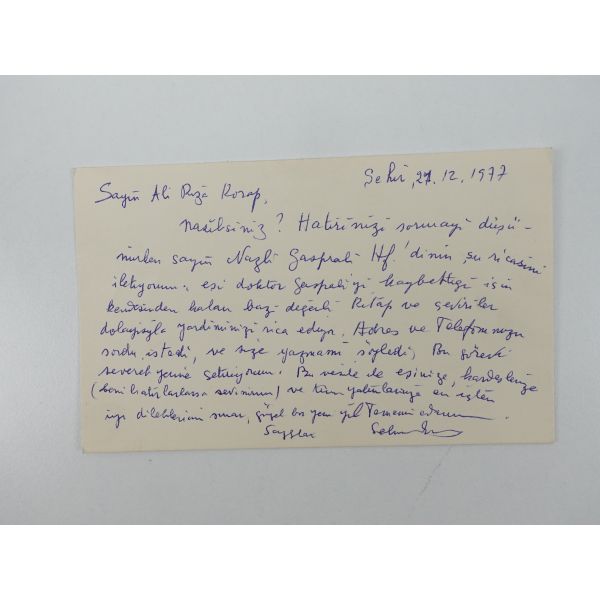 Şehir, 27.12.1977
Sayın Ali Rıza
nasılsınız? Hatırınızı sormayı düşü-
nürken sayın Nazlı Gaspıralı Hf.'dinin şu ricasını
iletiyorum: eşi doktor Gaspıralı'yı kaybettiği için
kendisinden kalan bazı değerli kitap ve çeviriler
dolayısıyla yardımınızı rica ediyor. Adres ve Telefonunuzu
sordu, istedi, ve size yazmamı söyledi, Bu görevi
severek yerine getiriyorum. Bu vesile ile eşinize, kardeşinize
(beni hatırlarlarsa sevinirim) ve tüm yakınlarınıza en içten
iyi dileklerimi sunar, güzel bir yeni yıl Temenni ederim.
Saygılar